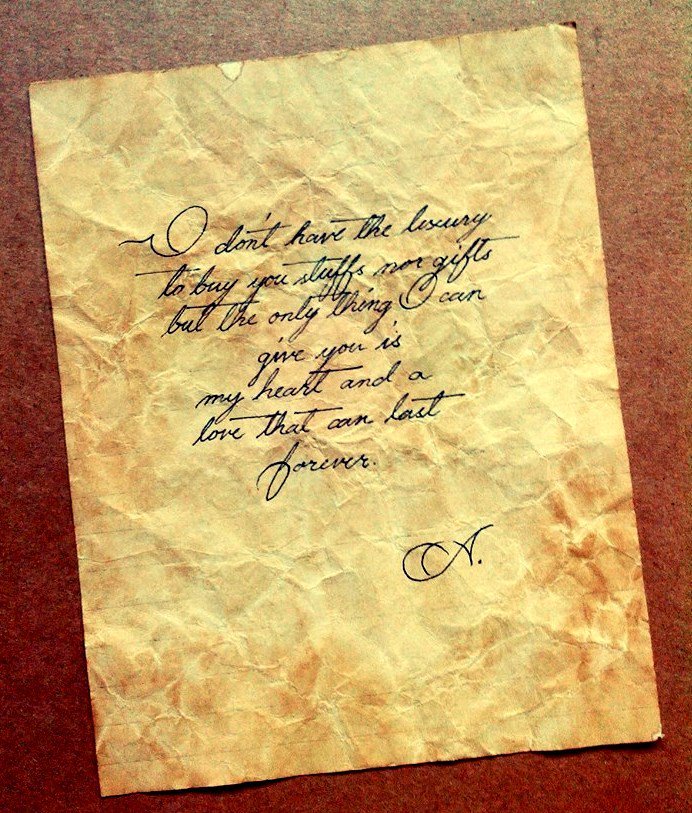 I don't have the luxury
to buy you stuffs nor gifts
but the only thing I can
give you is
my heart and a
love that can last
forever.
A.